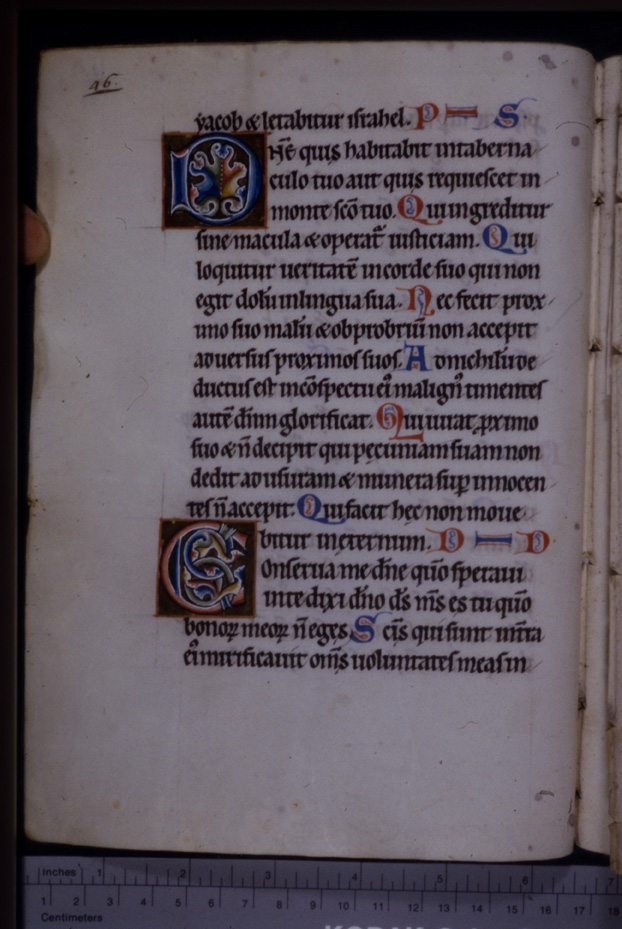 96.
yacob & letabitur israhel. P S
Dn̄e quis habitabit intaberna
culo tuo aut quis requiescet in
monte scō tuo. Qui ingreditur
sine macula & operat᷑ iusticiam. Qui
loquitur ueritatē incorde suo qui non
egit dolū inlingua sua. Nec fecit prox
imo suo malū & obprobriū non accepit
aduersus proximos suos. Adnichilū de
ductus est incōspectu eiꝰ malignꝰ timentes
autē dn̄m glorificat. Qui iurat ꝓximo
suo & n̄ decipit qui pecuniam suam non
dedit ad usuram & munera suꝑ innocen
tes n̄ accepit. Qui facit hęc non moue
bitur inęternum. D D
Conserua me dn̄e qūo speraui
inte dixi dn̄o ds̄ ms̄ es tu qūo
bonoꝝ meoꝝ n̄ eges. Scīs qui sunt int̄ra
eiꝰ mirificauit om̄s uoluntates meas in
Inches 1 2 3 4 5 6 7
1 2 3 4 5 6 7 8 9 10 11 12 13 14 15 16 17 18
Centimeters